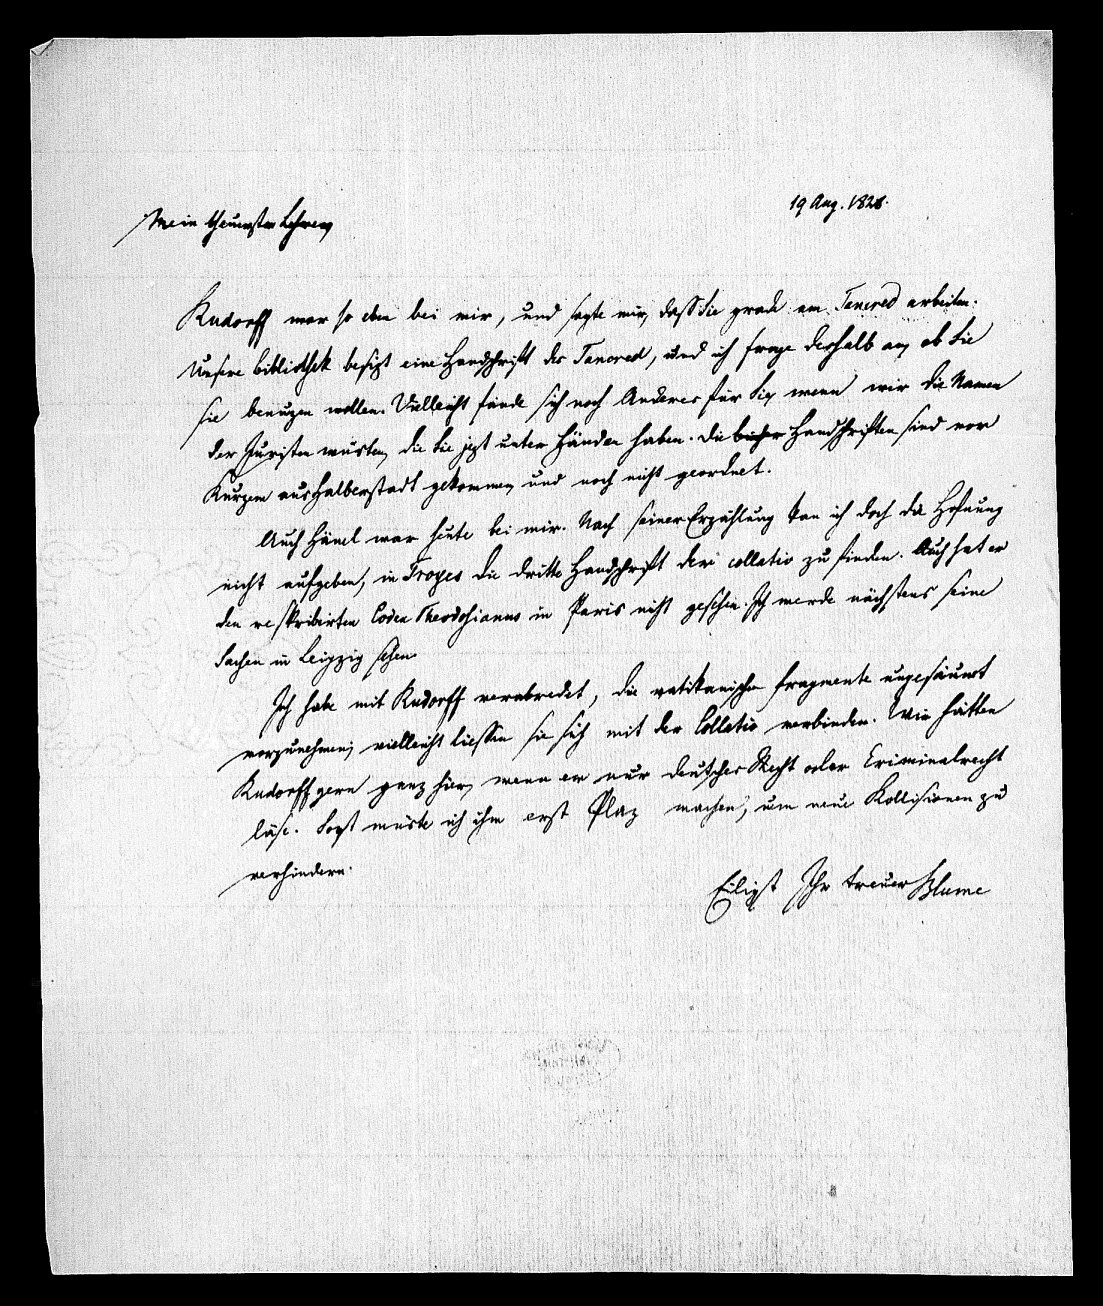 19 Aug. 1828.
Mein theuerster Lehrer,
Rudorff war so eben bei mir, und sagte mir, dass Sie grade am Tancred arbeiten.
Unsere bibliothek besizt eine Handschrift des Tancred, und ich frage deshalb an, ob Sie
sie benuzen wollen. Vielleicht fände sich noch Anderes für Sie, wenn wir die Namen
der Juristen wüsten, die Sie jezt unter Händen haben. Die Handschriften sind vor
Kurzem aus Halberstadt gekommen, und noch nicht geordnet.
Auch Hänel war heute bei mir. Nach seiner Erzählung kan ich doch die Hofnung
nicht aufgeben, in Troyes die dritte Handschrift der collatio zu finden. Auch hat er
den reskribirten Codex Theodosianus in Paris nicht gesehen. Ich werde nächstens seine
Sachen in Leipzig sehen.
Ich habe mit Rudorff verabredet, die vatikanischen fragmente ungesäumt
vorzunehmen; vielleicht liessen sie sich mit der Collatio verbinden. Wir hätten
Rudorff gern ganz hier, wenn er nur deutsches Recht oder Criminalrecht
läse. Sonst müste ich ihm erst Plaz machen, um neue Kollisionen zu
verhindern.
Eiligst Ihr treuer Blume